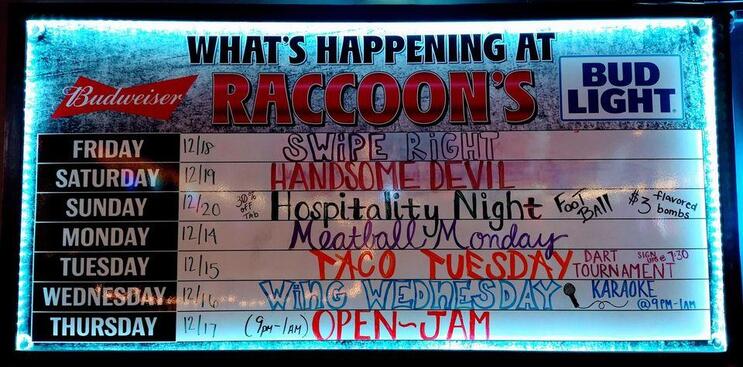 WHAT'S HAPPENING AT
RACCOON'S
Budweiser
BUD
LIGHT
FRIDAY 12/18 SWIPE RIGHT
SATURDAY 12/19 HANDSOME DEVIL
SUNDAY 12/20 30% off Tab Hospitality Night FOOT BALL $3 flavored bombs
MONDAY 12/14 Meatball Monday
TUESDAY 12/15 TACO TUESDAY DART TOURNAMENT SIGN UPS @ 7:30
WEDNESDAY 12/16 WING WEDNESDAY KARAOKE @ 9PM-1AM
THURSDAY 12/17 (9pm-1AM) OPEN~JAM